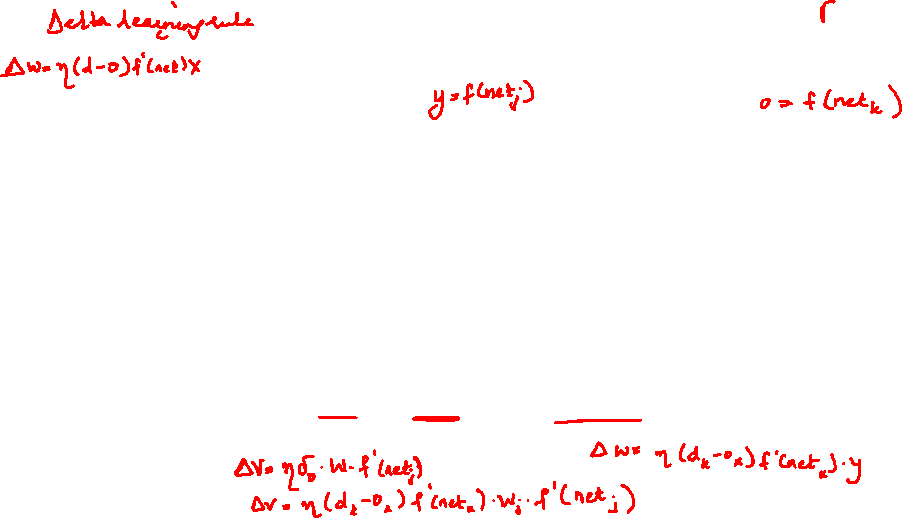 Delta learning rule
Δw = η(d-o)f'(net)x
y = f(net_j)
o = f(net_k)
Δw = η(d_k-o_k)f'(net_k)·y
Δv = ηδ_o·w·f'(net_j)
Δv = η(d_k-o_k)f'(net_k)·w_j·f'(net_j)